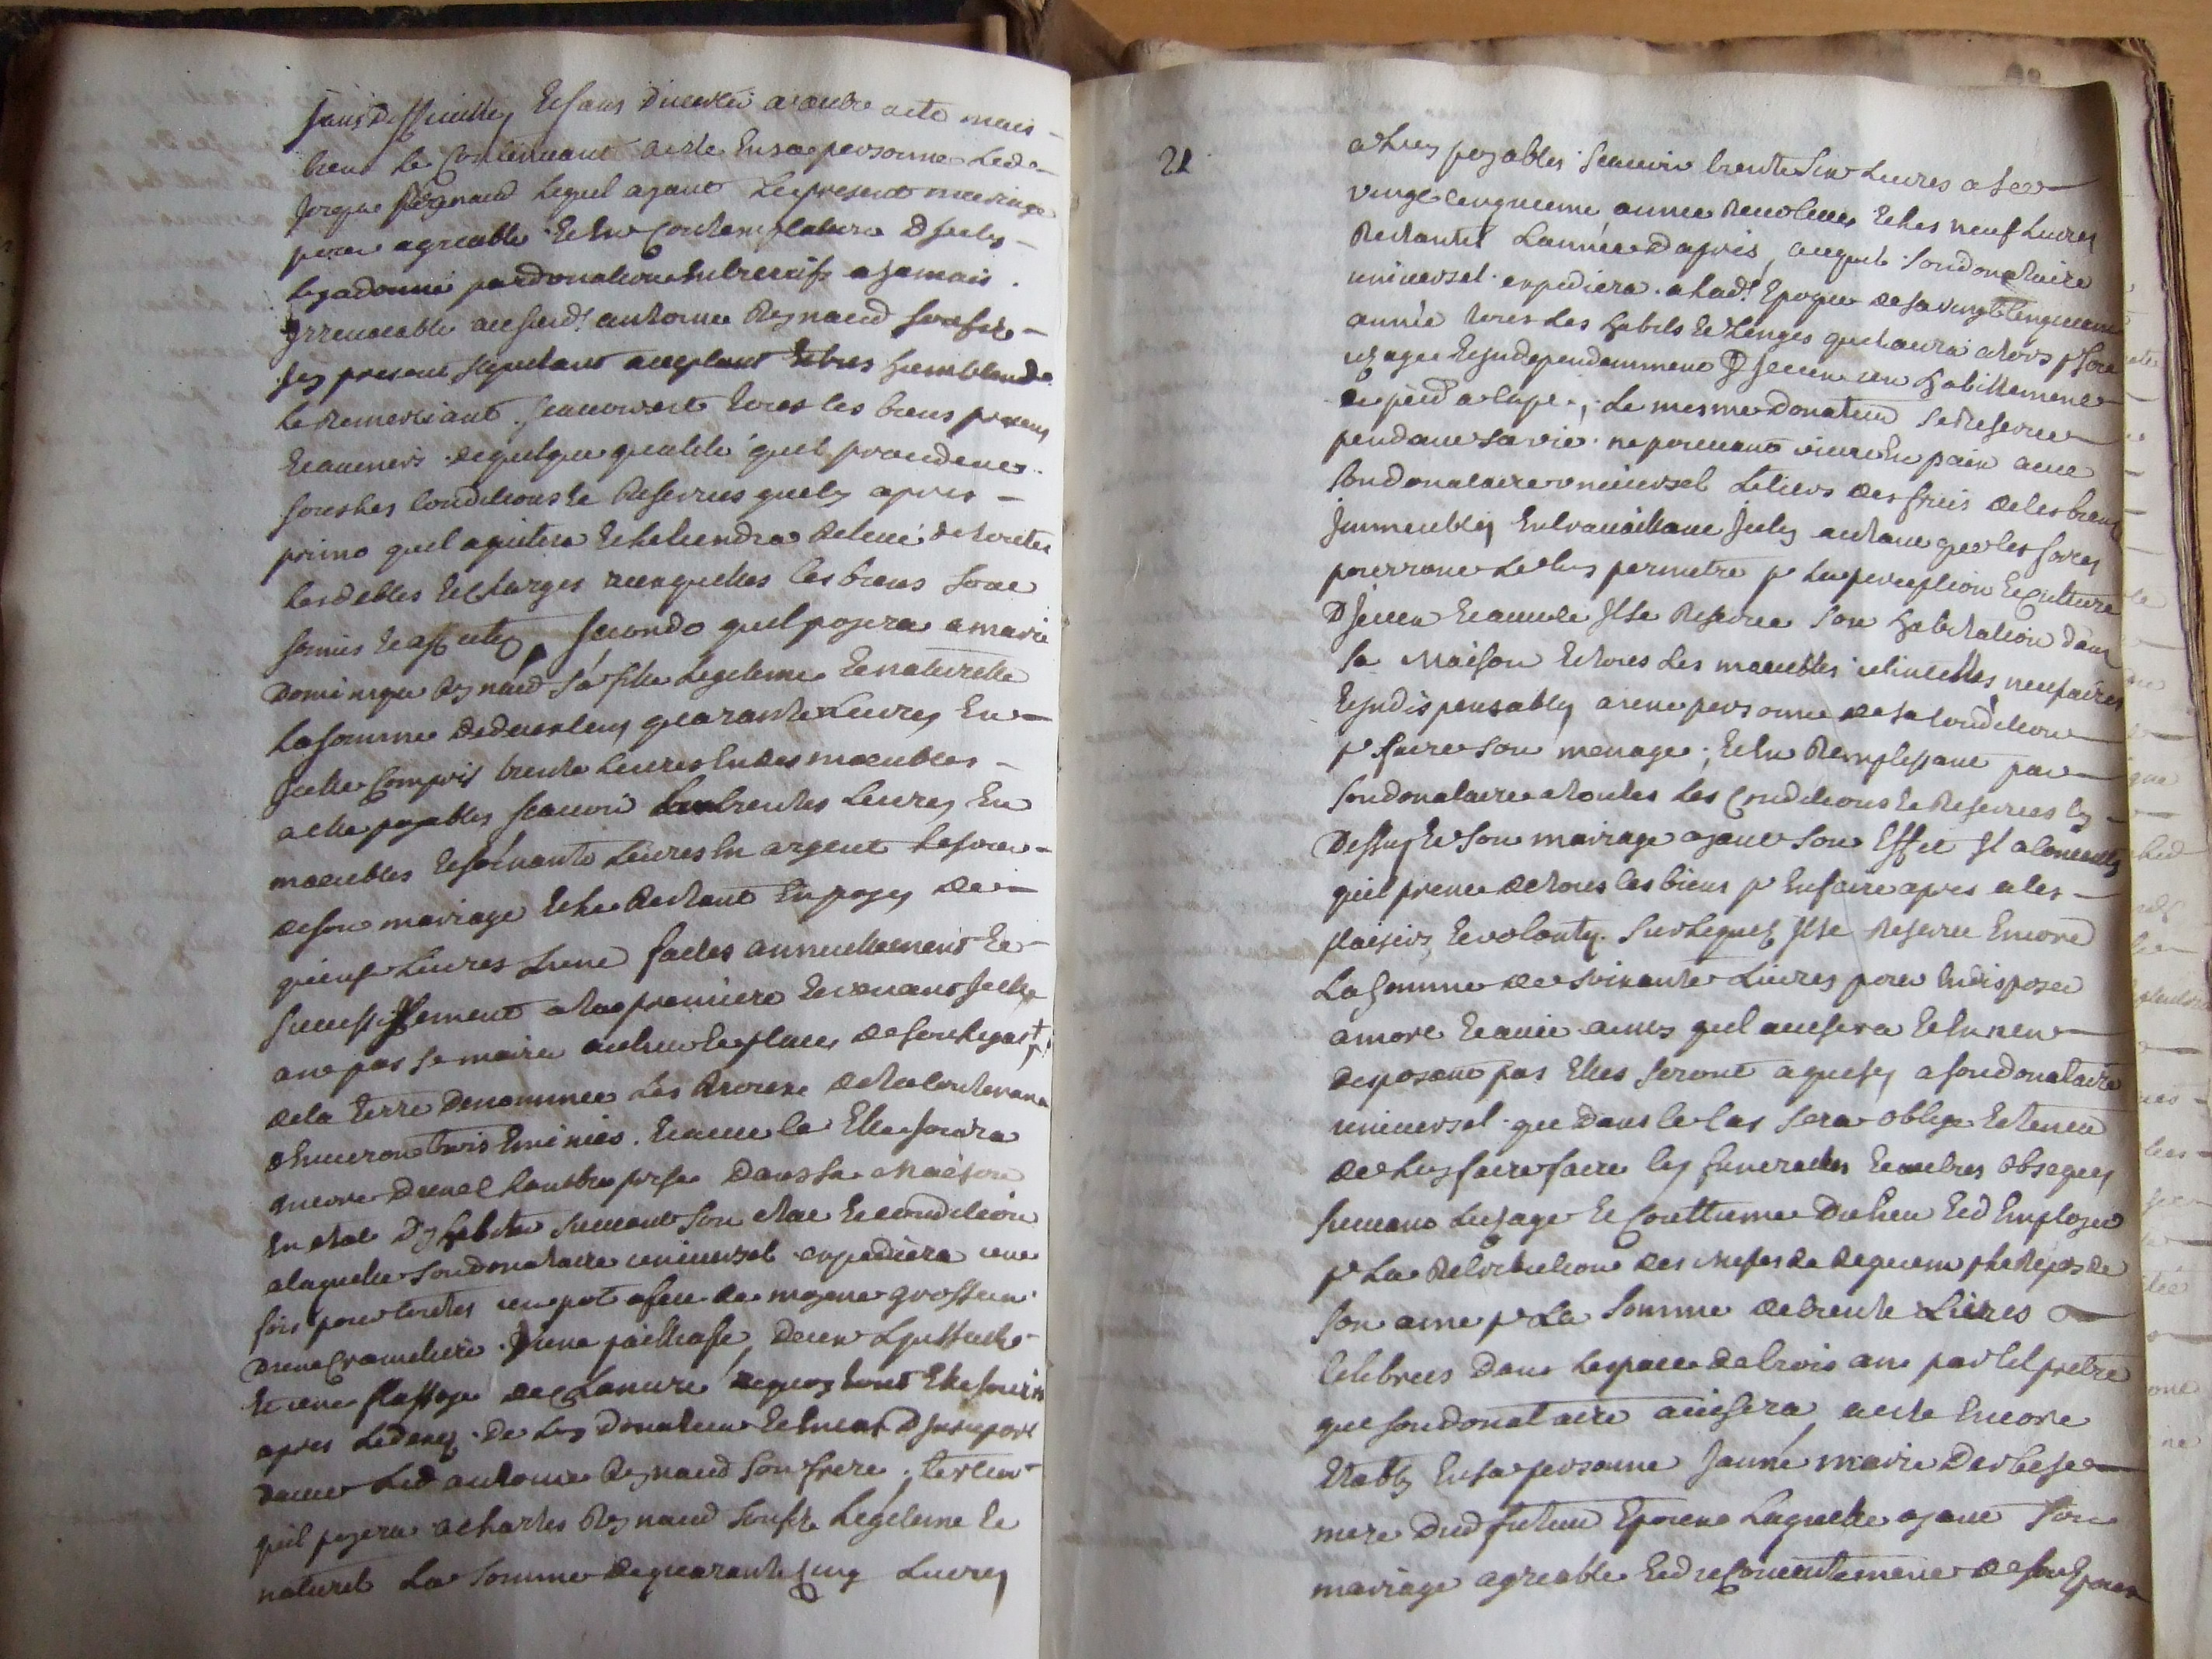 sans Et sans diverter a autre acte mais
bien le Continuant aiste En sa personne Led.
Jorgue Reynaud lequel ayant Le present mariage
pour agreable Et En Contemplation D Jceluy
luy a donné par donnation Entrevifs a jamais
Jrrevocable au susd.t antoine Reynaud son fils
Jcy present stipulant acceptant Et tres humblement
Le Remerciant scavoir est tous les biens presens
Et avenirs de quelque qualité quil
sous les Conditions Et Reserves quely apres
primo quil aquitera Et tiendra Relevé de toutes
les debtes Et Charges auxquelles les biens sont
soumis Secondo quil payera a marie
Dominique Reynaud sa fille Legitime Et naturelle
La somme de deux Cens quarante Livres En
Jcelle Compris trente Livres En des meubles
a elle payables scavoir Les trentes Livres En
meubles Et soixante Livres En argent le jour
de son mariage Et le Restant En payes de
quinse Livres L'une faites annuellement Et
successifsement a la premiere Et venant Jcelle
a ne pas se marier au lieu Et place de son legat +
de la terre denommée Les de la Contenance
d'Environ trois Eminées. Et outre la Elle jouira
encore d'une Chambre prise Dans sa Maison
En Etat D'y habiter suivant son Etat Et condition
a laquelle son donataire universel expediera une
fois pour toutes un pot a feu de moyene grosseur
D'une Cramaliere D'une paillasse, D'un Linsseul
Et une flassoye de Elle jouira
apres Le deces de Luy Donateur Et
avec Led antoine Reynaud son frere; tertiu
quil payera a Charles Reynaud son fils Legitime Et
naturel La Somme de quarante Cinq Livres
21
a Luy payables scavoir trente six Livres a sa
vingt cinquieme année Revolue Et les neuf Livres
Restantes L'année d'apres, auquel son donataire
universel expediera a Lad.t Epoque de sa vingt Cinquieme
année tous Les habits Et Linges quil aura alors p.r son
usage Et Jndependemment D Jceux un habillement
de pied a Cape; Le mesme Donateur se Reserve
pendant sa vie ne pouvant vivre En paix avec
son donataire universel Le tiers des fruis de ses biens
Jmmeubles En travaillant Jceluy autant que les forces
pourront Le luy permetre p.r La perception Et Culture
D Jceux Et outre Jl se Reserve son habitation dans
sa Maison Et tous Les meubles utincelles necessaires
Et Jndispensables a une personne de sa Condition
p.r faire son menage; Et En Remplissant par
son donataire a toutes Les Conditions Et Reserves Cy
Dessus Et son mariage ayant son Effet Jl a Consenty
quil prene de tous les biens p.r En faire apres a ses
plaisirs Et volonté. Sur Lequel Jl se Reserve Encore
La somme de soixante Livres pour En disposer
a mort Et a vie ainsy quil avisera Et En n'en
disposant pas Elles seront aquises a son donataire
universel que Dans Ce Cas sera obligé Et tenu
de Luy faire faire les funerailles Et autres obseques
suivant L'usage Et Couttume Du lieu Et d'Employer
p.r La Retribution des messes de Requiem p.r le Repos de
son ame p.r La somme de trente Livres
Celebrées Dans L'espace de trois ans par tel pretre
que son donataire avisera, aiste Encore
Etably En sa personne Janne marie Derbese
mere Dud futur Epoux Laquelle ayant son
mariage agreable Et du Consentement de son Epoux